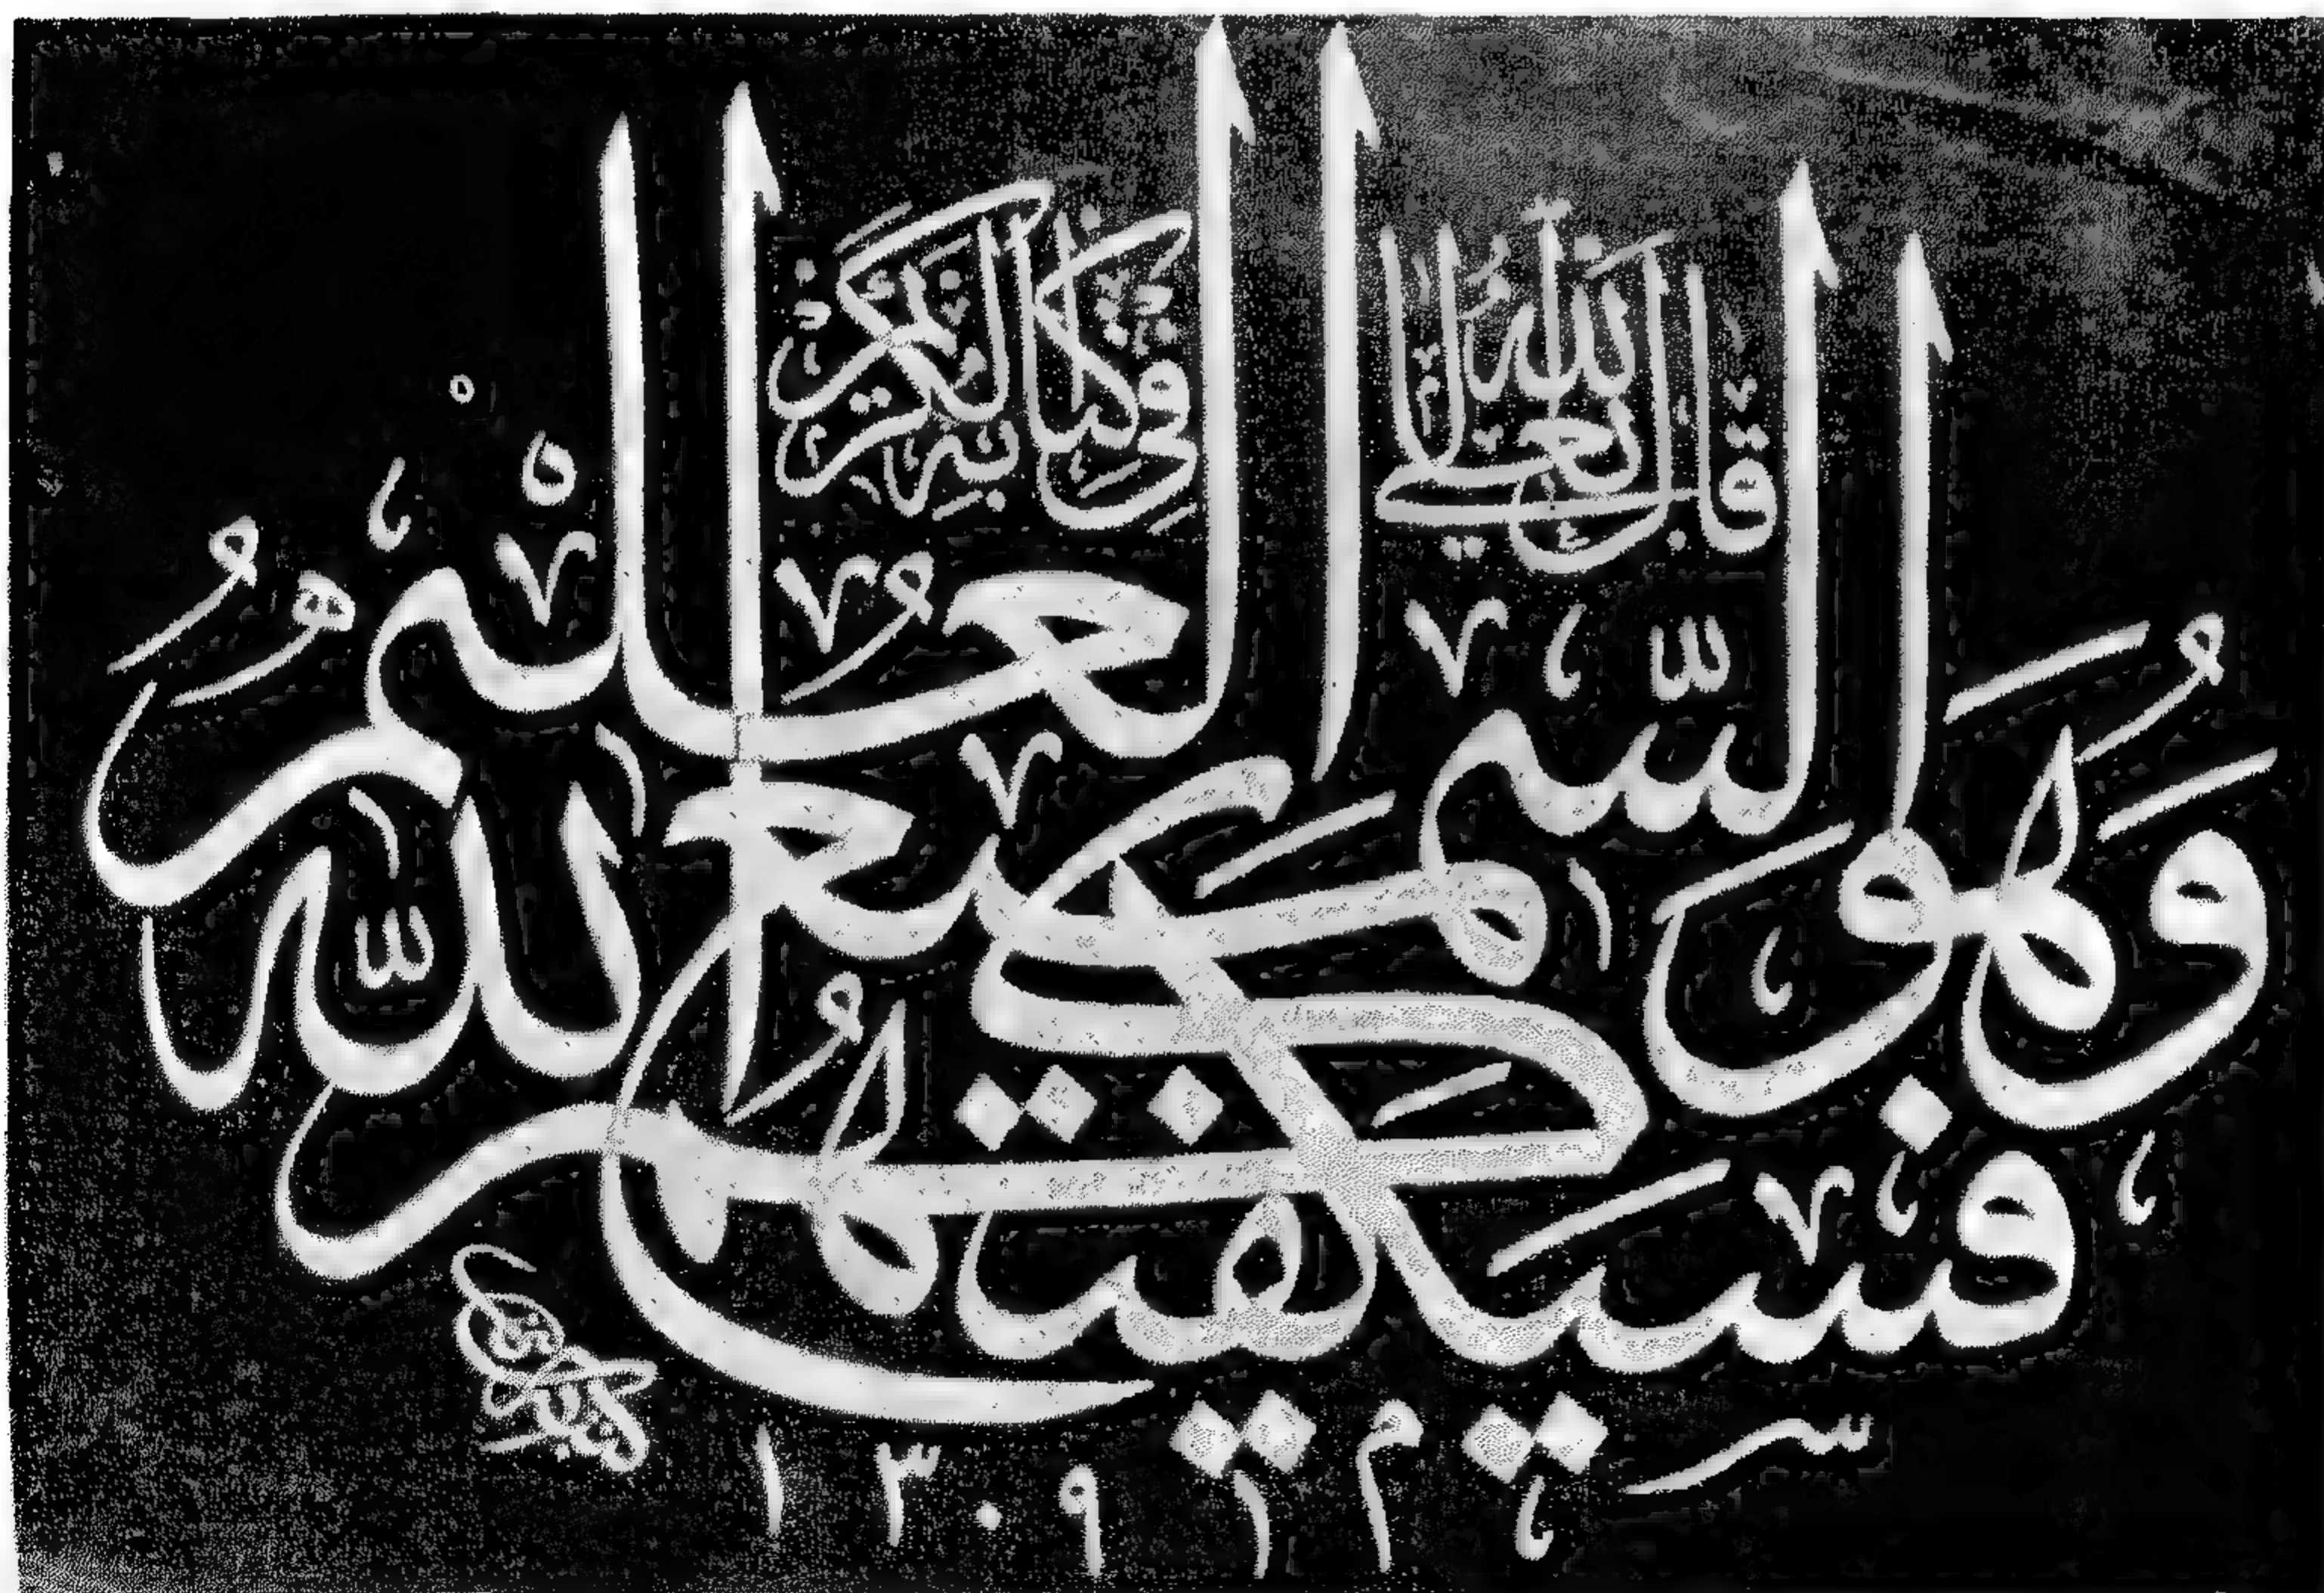 قال الله تعالى
في كتابه الكريم
فسيكفيكهم الله
وهو السميع العليم
١٣٠٩